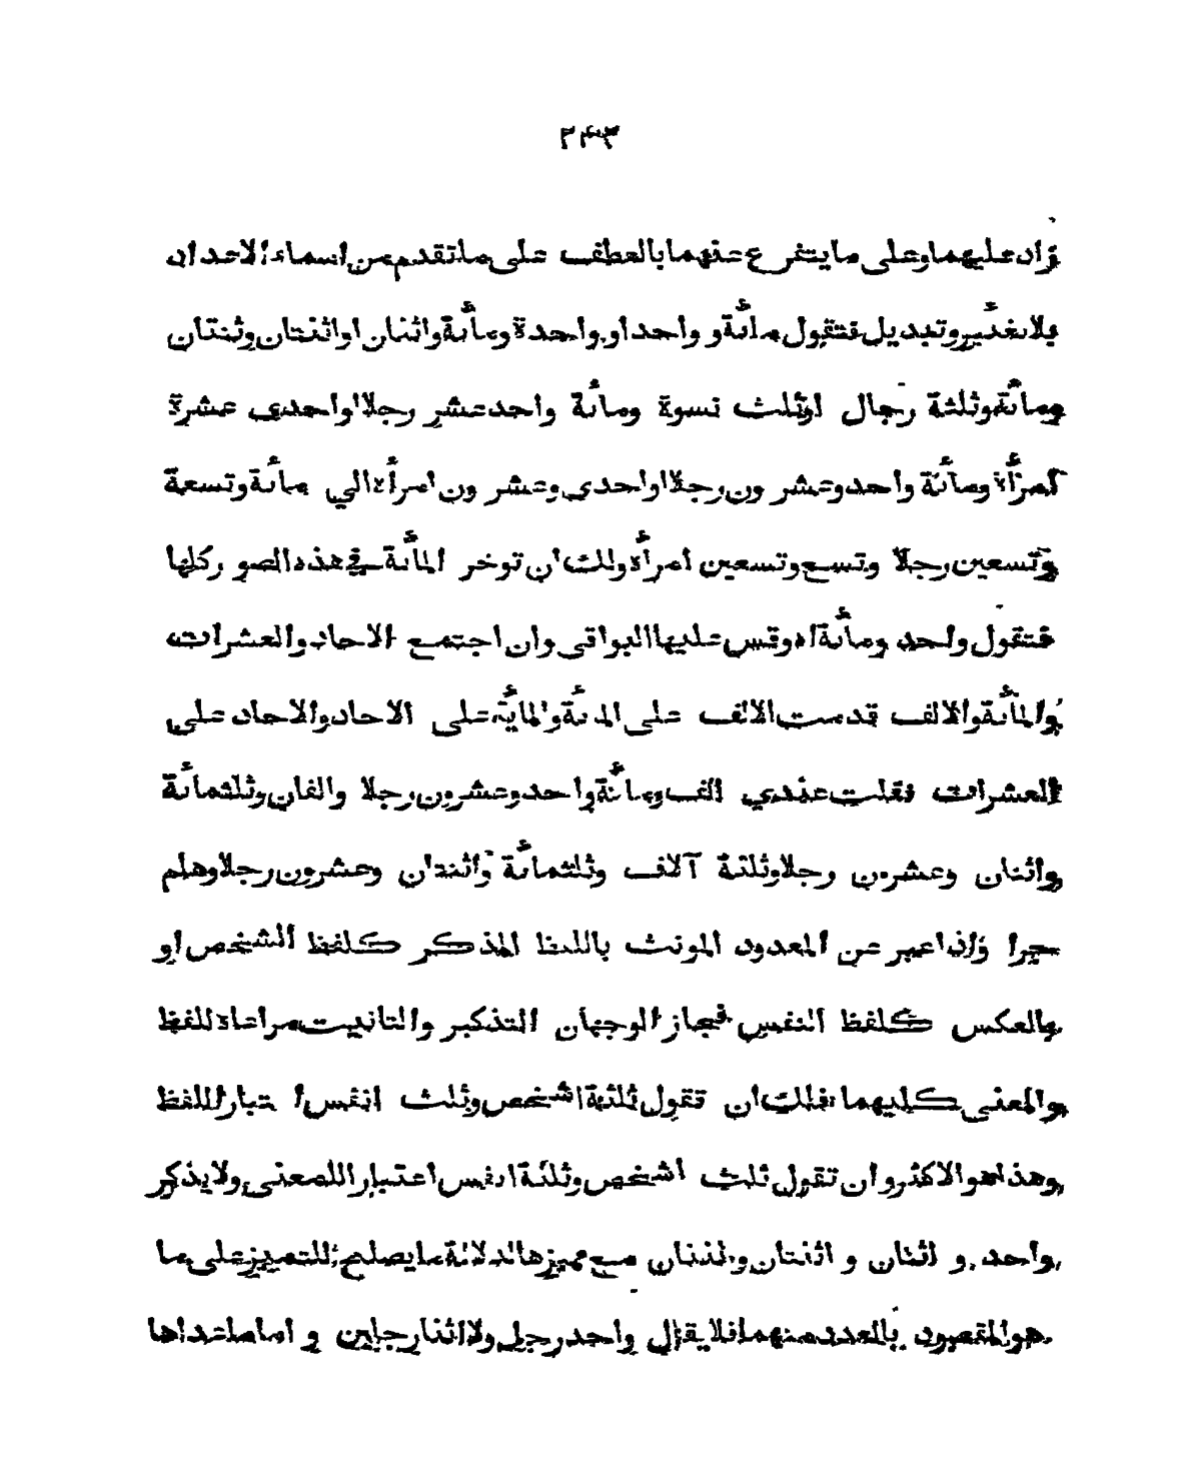 ٢٤٣
زاد عليهما وعلى ما يتفرع عنهما بالعطف على ما تقدم من اسماء الاعداد
بلا تغئير وتبديل فتقول مائة و واحد او واحدة ومأئة واثنان او اثنتان وثنتان
ومائة وثلثة رجال او ثلث نسوة ومائة واحد عشر رجلا او احدى عشرة
امرأة ومأئة واحد وعشرون رجلا او احدى وعشرون امرأة الي مأئة وتسعة
وتسعين رجلا وتسع وتسعين امرأة ولك ان توخر المأئة في هذه الصور كلها
فتقول واحد ومأئة اه وقس عليها البواقى وان اجتمع الاحاد والعشرات
والمأئة والالف قدمت الالف على المئة والمأية على الاحاد والاحاد على
العشرات فقلت عندي الف ومأئة واحد وعشرون رجلا والفان وثلثمأئة
واثنان وعشرون رجلا وثلثة آلاف وثلثمأئة واثنتان وعشرون رجلا وهلم
جرا واذا عبر عن المعدود المونث باللفظ المذكر كلفظ الشخص او
بالعكس كلفظ النفس فجاز الوجهان التذكير والتانيث مراعاة للفظ
والمعنى كليهما فلك ان تقول ثلثة اشخص وثلث انفس اعتبارا للفظ
وهذا هو الاكثر وان تقول ثلث اشخص وثلثة انفس اعتبارا للمعنى ولا يذكر
واحد و اثنان و اثنتان وثنتان مع مميزها لدلالة ما يصلح للتمييز على ما
هو المقصود بالعدد منهما فلا يقال واحد رجل ولا اثنا رجلين و اما ما عداها